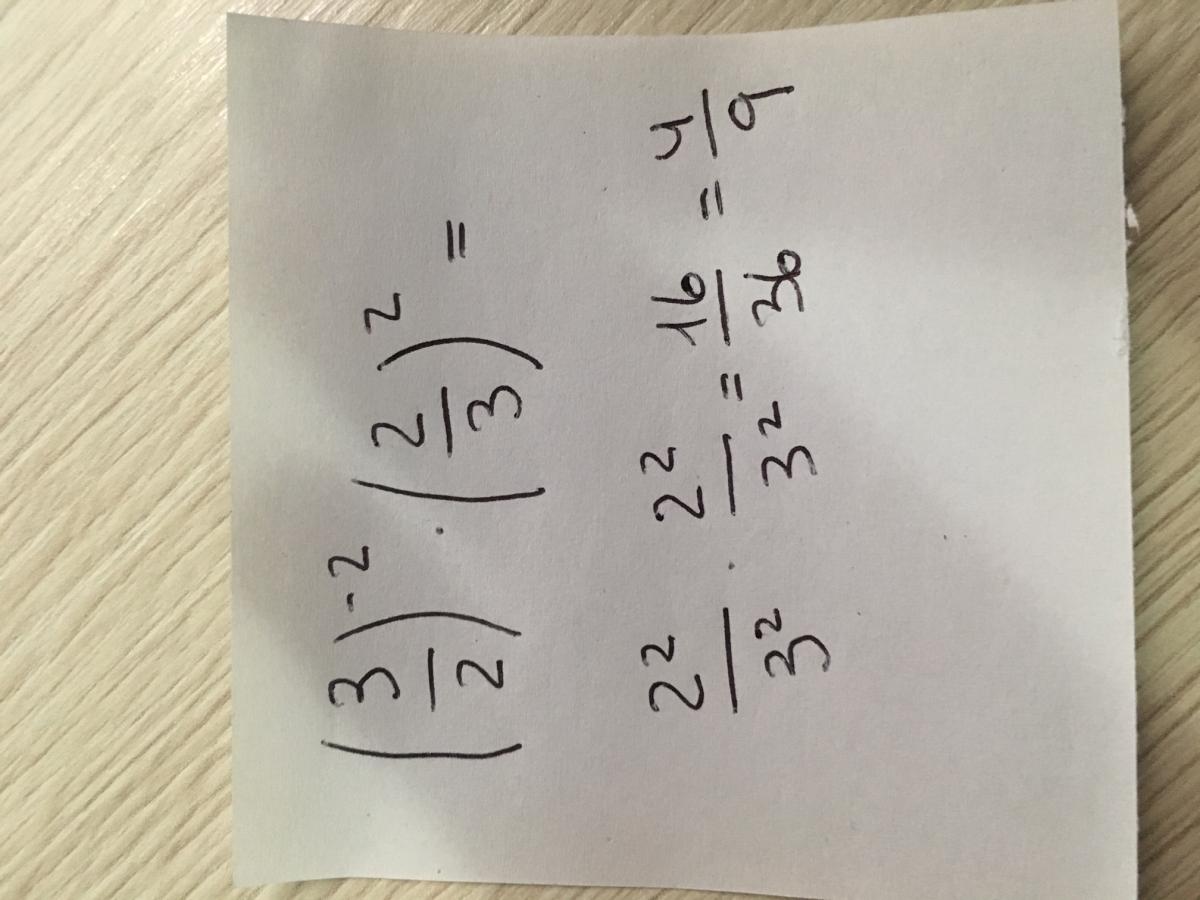 (3/2)^-2 · (2/3)^2 =
2^2/3^2 · 2^2/3^2 = 16/36 = 4/9